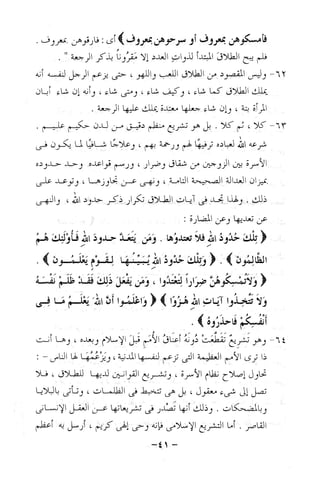 فأمسكوهن بمعروف أو سرحوهن بمعروف ﴾ أى : فارقوهن بمعروف .
فلم يبح الطلاق المبتدأ لذوات العدد إلا مقرونًا بذكر الرجعة " .
٦٢- وليس المقصود من الطلاق اللعب واللهو ، حتى يزعم الرجل لنفسه أنه
يملك الطلاق كما شاء ، وكيف شاء ، ومتى شاء ، وأنه إن شاء أبان
المرأة بتة ، وإن شاء جعلها معتدة يملك عليها الرجعة .
٦٣- كلا ، ثم كلا . بل هو تشريع منظم دقيق من لدن حكيم عليم .
شرعه الله لعباده ترفيهًا لهم ورحمة بهم ، وعلاجًا شافيًا لما يكون فى
الأسرة بين الزوجين من شقاق وضرار ، ورسم قواعده وحد حدوده
بميزان العدالة الصحيحة التامة ، ونهى عن تجاوزها ، وتوعد على
ذلك . ولهذا تجد فى آيات الطلاق تكرار ذكر حدود الله ، والنهى
عن تعديها وعن المضارة :
﴿ تِلْكَ حُدُودُ اللهِ فَلاَ تعتدوها . وَمَن يَتَعَدَّ حدودَ اللهِ فَأُوْلَئِكَ هُمُ
الظَّالِمُونَ ﴾ . ﴿ وَتِلْكَ حُدُودُ اللهِ يُبَيِّنُهَا لِقَوْمٍ يَعْلَمُونَ ﴾ .
﴿ وَلاَتُمْسِكُوهُنَّ ضِرَاراً لِتَعْتَدُوا . وَمَن يَفْعَلْ ذَلِكَ فَقَدْ ظَلَمَ نَفْسَهُ
وَلاَ تَتَّخِذُوا آيَاتِ اللهِ هُزُوًا ﴾ ﴿ وَاعْلَمُوا أَنَّ اللهَ يَعْلَمُ مَا فِى
أَنْفُسِكُمْ فَاحذَرُوهُ ﴾ .
٦٤- وهو تشريع تَقَطَّعَتْ دُونَهُ أعناقُ الأُمَمِ قبلَ الإسلام وبعده ، وها أنت
ذا ترى الأمم العظيمة التى تزعم لنفسها المدنية ، ويَزْعُمُهَا لها الناس - :
تحاول إصلاح نظام الأسرة ، وتشريع القوانين لديها للطلاق ، فلا
تصل إلى شىء معقول ، بل هى تتخبط فى الظلمات ، وتأتى بالبلايا
وبالمضحكات . وذلك أنها تَصْدر فى تشريعاتها عن العقل الإنسانى
القاصر . أما التشريع الإسلامى فإنه وحى إلهى كريم ، أرسل به أعظم
-٤١-